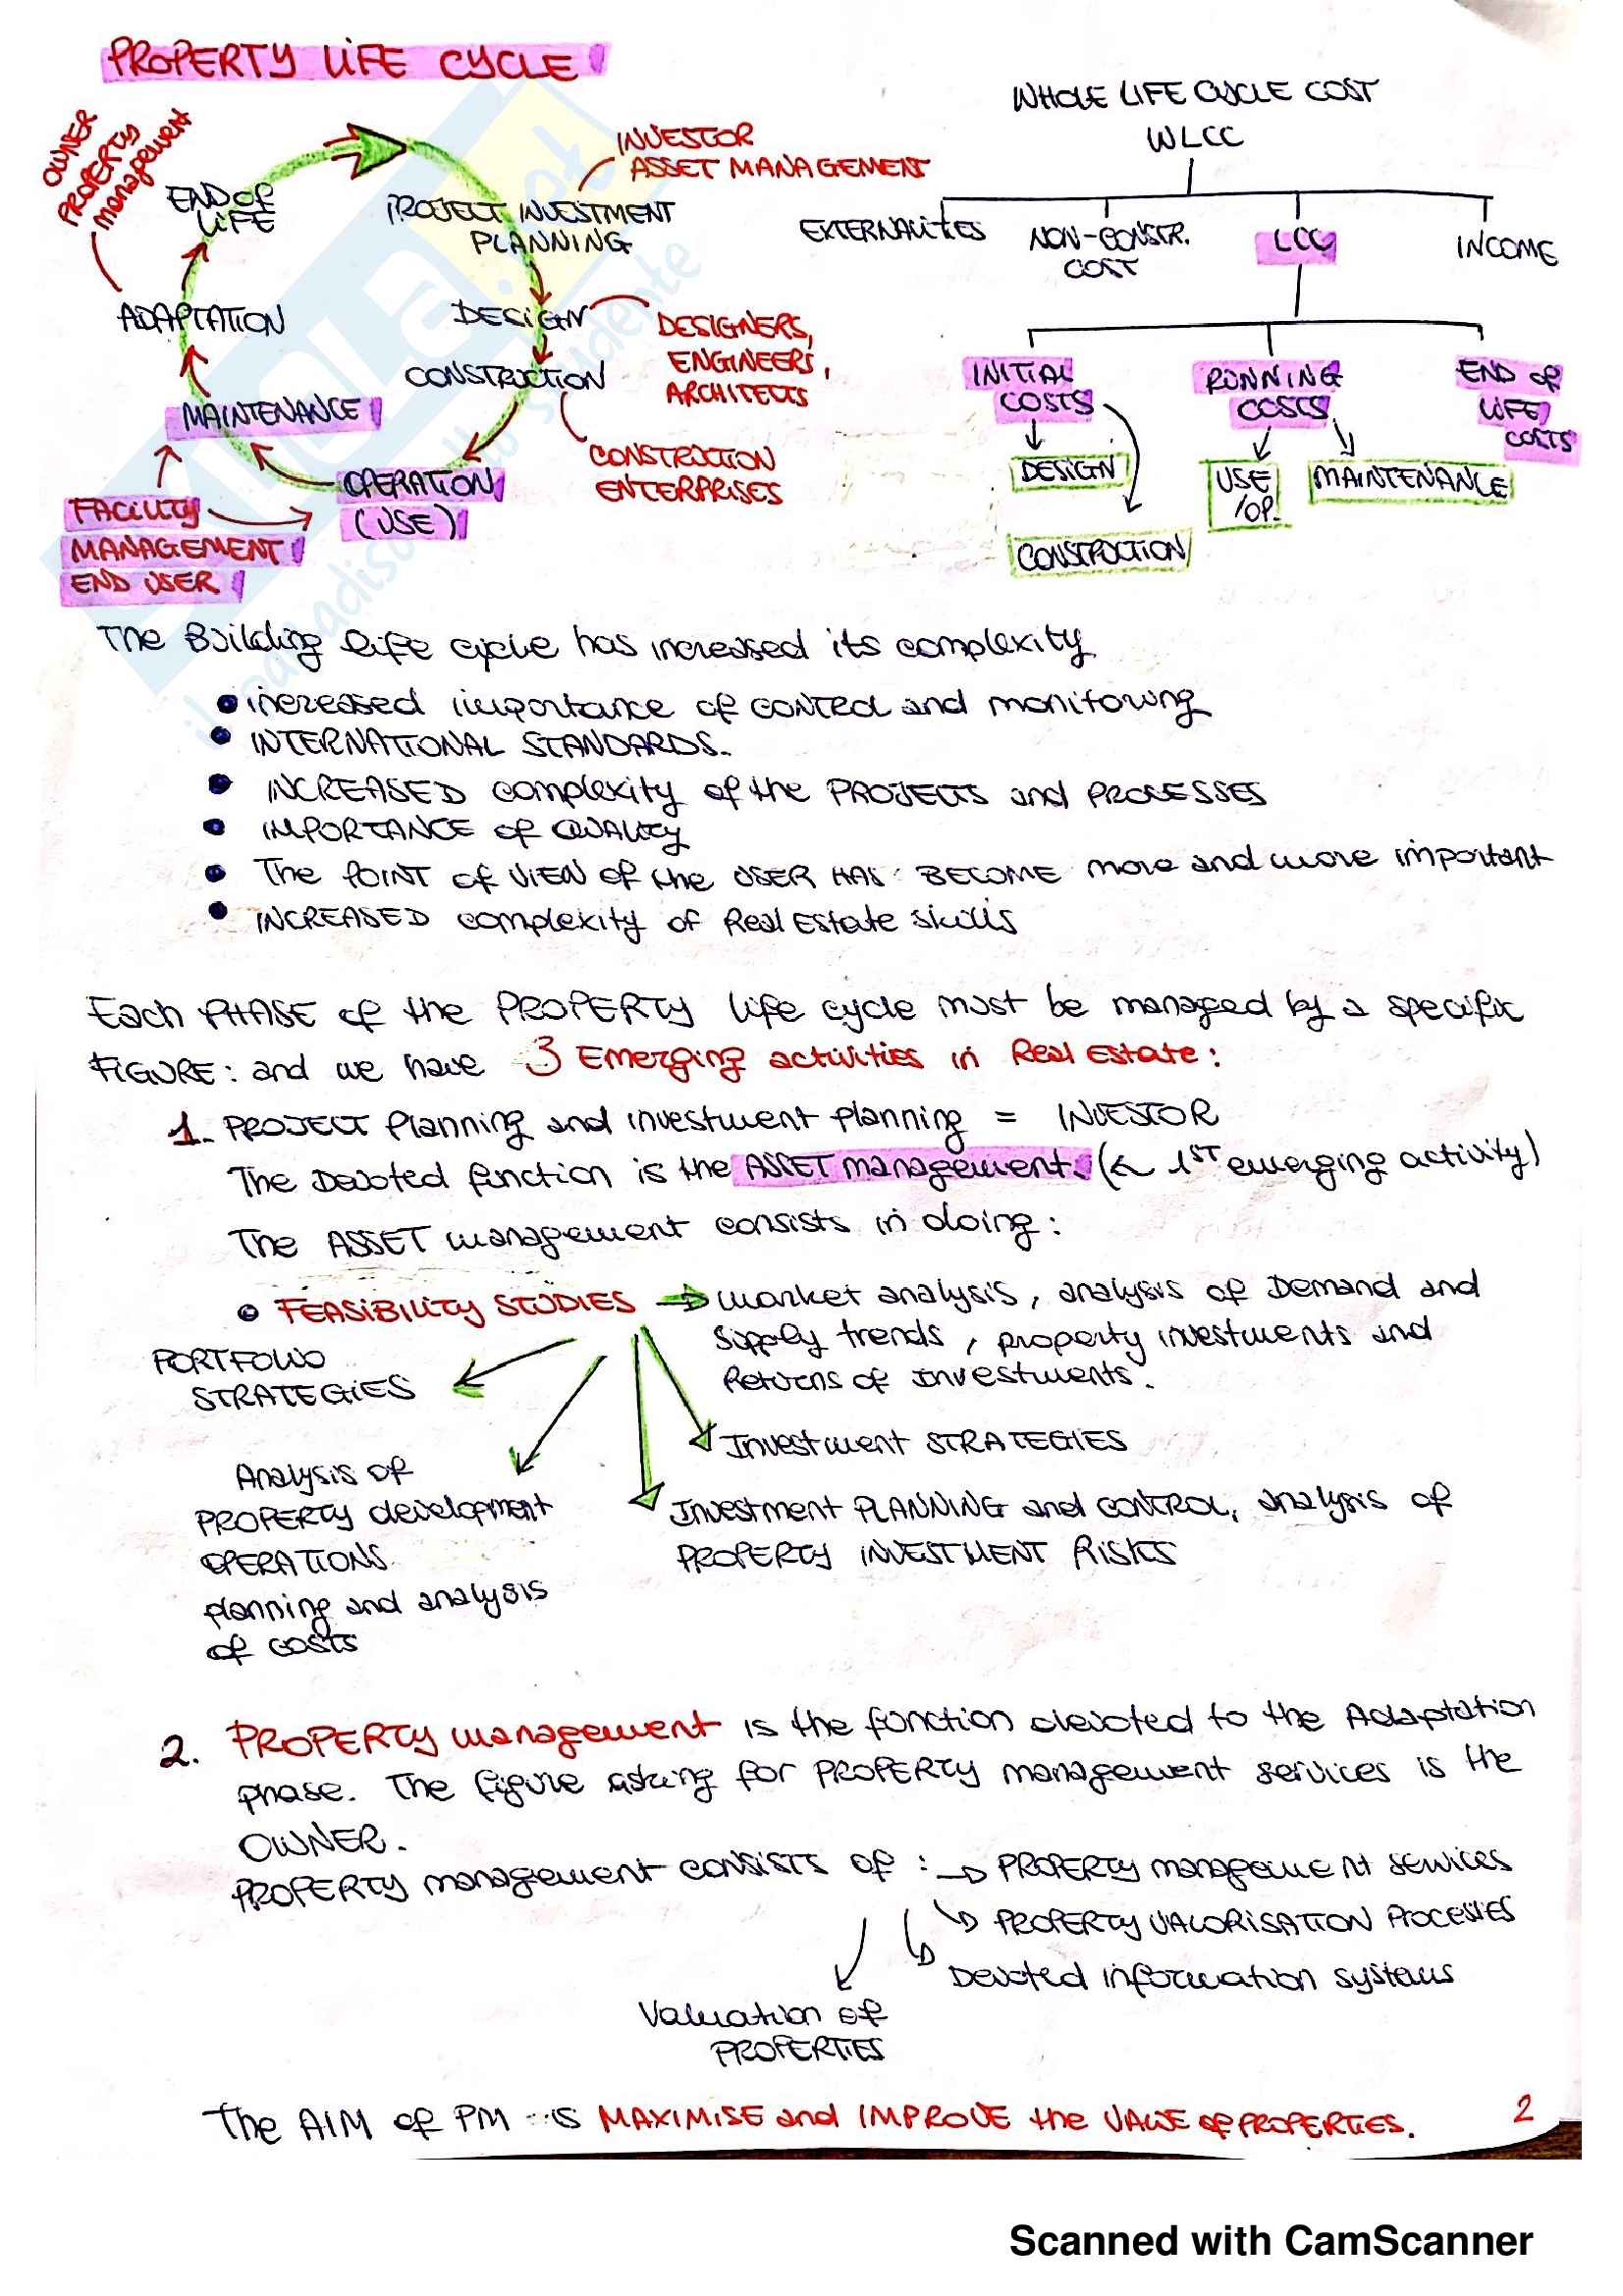 PROPERTY LIFE CYCLE
OWNER
PROPERTY
management
END OF
LIFE
INVESTOR
ASSET MANAGEMENT
PROJECT INVESTMENT
PLANNING
ADAPTATION
DESIGN
DESIGNERS,
ENGINEERS,
ARCHITECTS
CONSTRUCTION
MAINTENANCE
CONSTRUCTION
ENTERPRISES
OPERATION
(USE)
FACILITY
MANAGEMENT
END USER
WHOLE LIFE CYCLE COST
WLCC
EXTERNALITES
NON-CONSTR.
COST
LCC
INCOME
INITIAL
COSTS
RUNNING
COSTS
END OF
LIFE
COSTS
DESIGN
USE
/OP.
MAINTENANCE
CONSTRUCTION
The Building life cycle has increased its complexity
• increased importance of CONTROL and monitoring
• INTERNATIONAL STANDARDS.
• INCREASED complexity of the PROJECTS and PROCESSES
• IMPORTANCE OF QUALITY
• The POINT of VIEW of the USER HAS BECOME more and more important
• INCREASED complexity of Real Estate skills
Each PHASE of the PROPERTY life cycle must be managed by a specific
FIGURE: and we have 3 Emerging activities in Real Estate:
1. PROJECT Planning and investment planning = INVESTOR
The Devoted function is the ASSET management. (← 1ST emerging activity)
The ASSET management consists in doing:
• FEASIBILITY STUDIES → market analysis, analysis of Demand and
supply trends, property investments and
Returns of Investments.
PORTFOLIO
STRATEGIES
Investment STRATEGIES
Analysis of
PROPERTY development
OPERATIONS
planning and analysis
of costs
Investment PLANNING and CONTROL, analysis of
PROPERTY INVESTMENT RISKS
2. PROPERTY management is the function devoted to the Adaptation
phase. The figure asking for PROPERTY management services is the
OWNER.
PROPERTY management consists of: → PROPERTY management services
↳ PROPERTY VALORISATION PROCESSES
↳ Devoted information systems
Valuation of
PROPERTIES
The AIM of PM is MAXIMISE and IMPROVE the VALUE of PROPERTIES.
2
Scanned with CamScanner